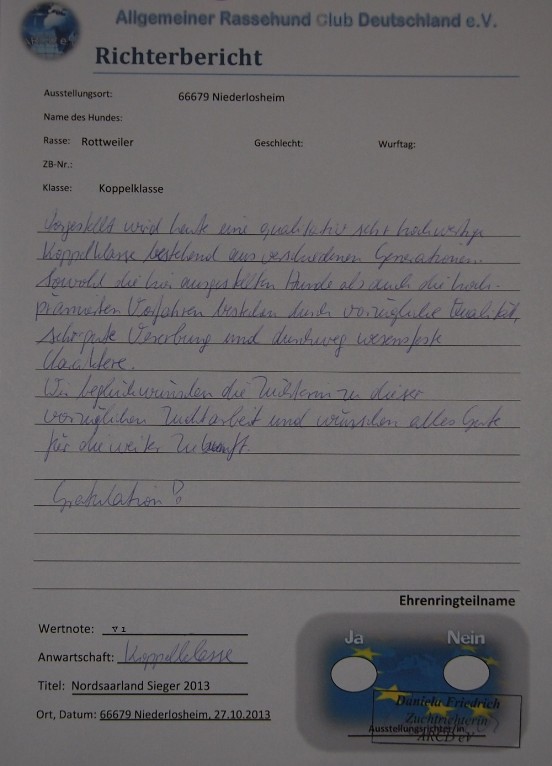 Allgemeiner Rassehund Club Deutschland e.V.
Richterbericht
Ausstellungsort: 66679 Niederlosheim
Name des Hundes:
Rasse: Rottweiler Geschlecht: Wurftag:
ZB-Nr.:
Klasse: Koppelklasse
Vorgestellt wird heute eine qualitativ sehr hochwertige
Koppelklasse bestehend aus verschiedenen Generationen.
Sowohl die hier ausgestellten Hunde als auch die hoch-
prämierten Vorfahren bestechen durch vorzügliche Qualität,
sehr gute Vererbung und durchweg wesensfeste
Charaktere.
Wir beglückwünschen die Züchterin zu dieser
vorzüglichen Zuchtarbeit und wünschen alles Gute
für die weitere Zukunft.
Gratulation!
Ehrenringteilname
Wertnote: V 1
Ja Nein
Anwartschaft: Koppelklasse
Titel: Nordsaarland Sieger 2013
Daniela Friedrich
Zuchtrichterin
Ort, Datum: 66679 Niederlosheim, 27.10.2013
Ausstellungsrichter/in
ARCD eV